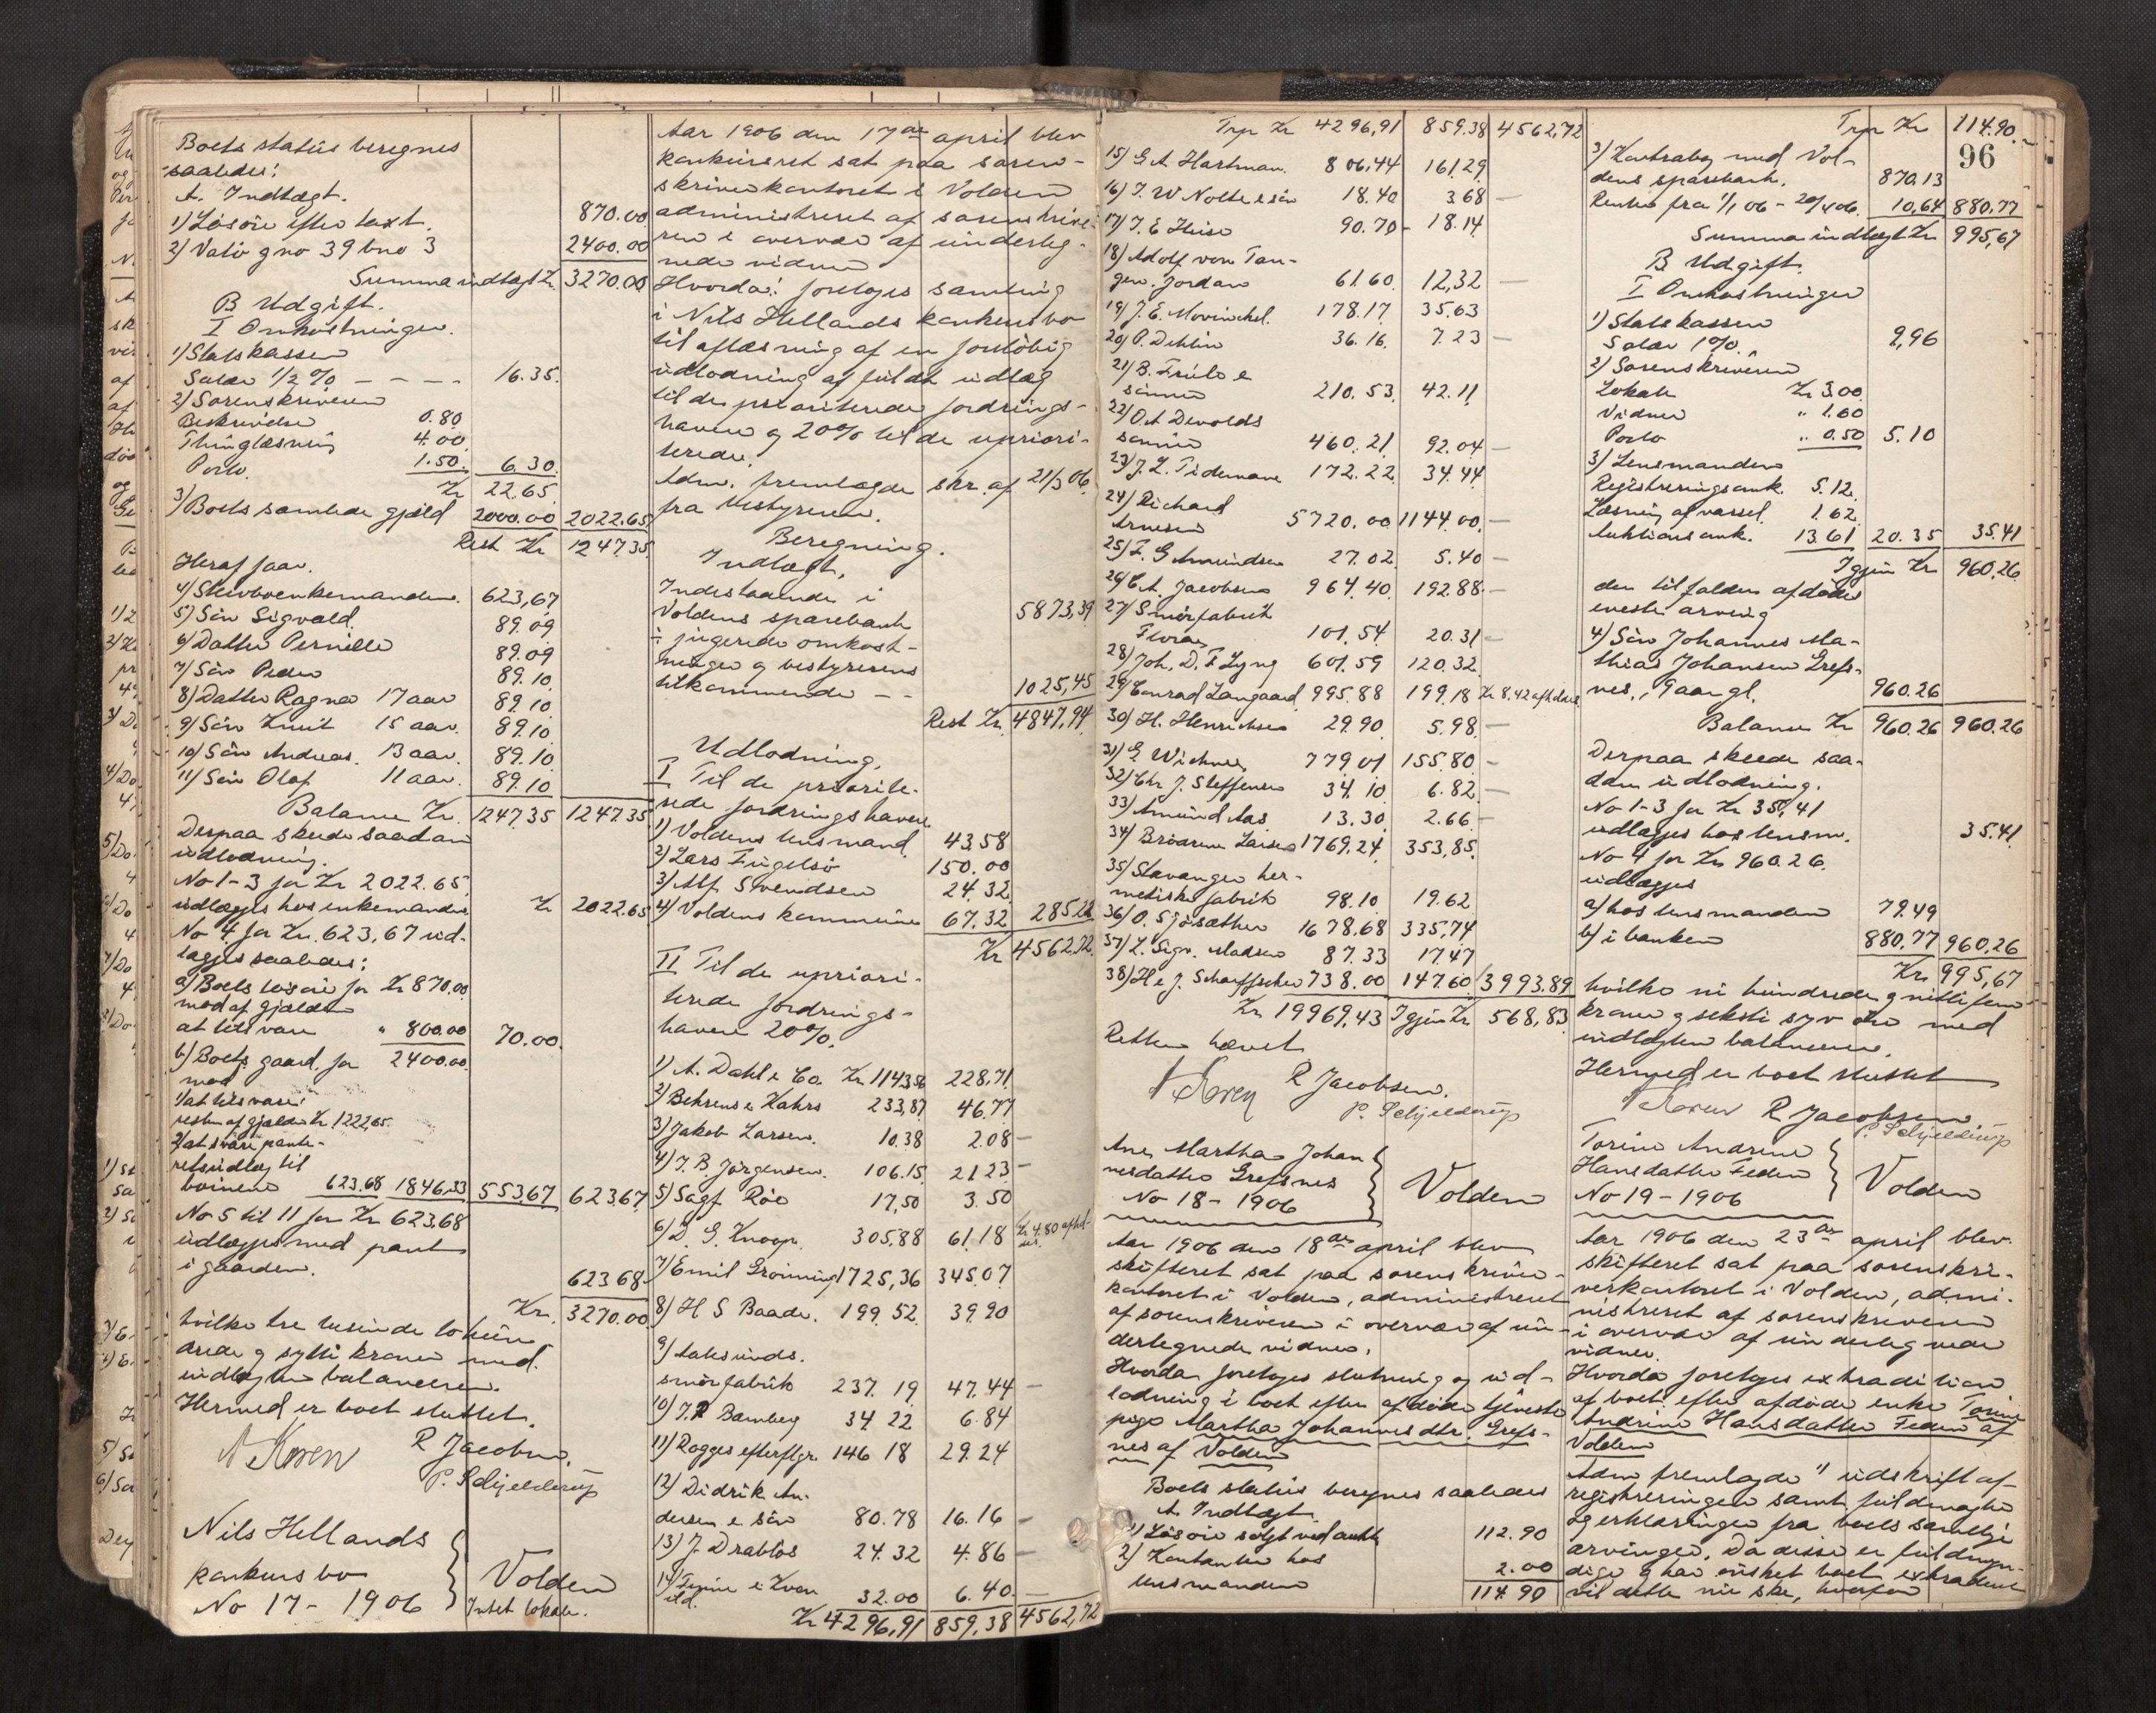 Boets status beregnes
saaledes:
A. Indtægt.
1) Løsøre efter taxt. 870.00
2) Valø gno 39 bno 3 2400.00
Summa indtægt Kr. 3270.00
B Udgift.
I Omkostninger.
1) Statskassen
Salær 1/2 % - - - - 16.35.
2) Sorenskriveren
Beskrivelse 0.80
Thinglæsning 4.00.
Porto. 1.50. 6.30.
Kr 22.65.
3) Boets samlede gjæld 2000.00 2022.65
Rest Kr 1247.35
Heraf faar.
4) Stervboenkemanden. 623,67
5) Søn Sigvald. 89.09
6) Datter Pernille 89.09
7) Søn Peder 89.10.
8) Datter Ragna 17 aar 89.10
9) Søn Knut 15 aar. 89.10
10) Søn Andreas. 13 aar. 89.10
11) Søn Olaf 11 aar. 89.10
Balance Kr. 1247.35 1247.35
Derpaa skede saadan
udlodning.
No 1-3 for Kr 2022.65.
udlægges hos enkemanden Kr 2022.65
No 4 for Kr. 623,67 ud-
lægges saaledes:
a) Boets løsøre for Kr 870.00
mod af gjælden
at tilsvare " 800.00 70.00.
b) Boets gaard. for 2400.00.
mod
1/ at tilsvare
resten af gjælden Kr 1222,65.
2/ at svare pante-
retsudlæg til
boinene 623.68 1846.33 553.67 623.67
No 5 til 11 for Kr 623.68
udlægges med pant
i gaarden. 623 68
Kr. 3270.00
hvilke tre tusinde to hun-
drede g sytti kroner med
indtægten balancerer.
Hermed er boet sluttet.
N Koren R Jacobsen.
P. Schjelderup
Nils Hellands
konkursbo
No 17 - 1906
Volden
Intet lokale.
Aar 1906 den 17de april blev
konkursret sat paa soren-
skriverkontoret i Volden
administreret af sorenskrive-
ren i overvær af underteg-
nede vidner
Hvorda: foretoges samling
i Nils Hellands konkursbo
til aflæsning af en foreløbig
udlodning af fuldt udlæg
til de prioriterede fordrings-
havere g 20% til de upriori-
terede.
Adm. fremlagde skr. af 21/3 06.
fra bestyreren.
Beregning.
Indtægt.
Indestaaende i
Voldens sparebank 5873,39
÷ fugerede omkost-
ninger g bestyrerens
tilkommende - - 1025,45
Rest Kr. 4847,94
Udlodning.
I Til de priorite-
rede fordringshavere
1) Voldens lensmand. 43.58
2) Lars Fugelsø 150.00
3) Alf Svendsen 24.32.
4) Voldens kommune 67.32 285.22
Kr 4562.72.
II Til de upriori-
terede fordrings-
havere 20%.
1) A. Dahl & Co. Kr. 1143.56 228,71
2) Behrens & Hahrs 233,87 46.77
3) Jakob Larsen. 10.38 2.08 -
4) J. B. Jørgensen. 106.15 21 23 -
5) Sagf Røe 17,50 3.50
6) D. G. Knoop. 305.88 61.18 Kr 4.80 afhol-
7) Emil Grønning 1725,36 345.07
8) H S Baade. 199.52. 39.90
9) Aalesunds.
smørfabrik 237.19 47.44 -
10) J. R Bamberg 34 22 6.84
11) Rogges efterflgr. 146 18 29.24
12) Didrik An-
dersen & søn 80.78 16.16 -
13) J. Drabløs 24.32 4.86 -
14)
32.00 6.40. -
Kr 4296,91 859.38 4562,72
Trp Kr 4296,91 859.38 4562,72
15) G A Hartman. 806,44 161,29
16) J. W Nolte & søn 18.40 3.68 -
17) J. E Huse 90.70 - 18.14
18) Adolf von Tan-
gen. Jordan 61.60. 12,32 -
19) J. E. Mowinckel. 178.17. 35.63
20) P. Dehlin 36.16. 7.23 -
21) B. Friele &
sønner 210.53. 42.11
22) O. A Devolds
sønner 460.21 92.04 -
23) J. L. Tidemann 172.22. 34.44
24) Richard
Arnesen 5720.00 1144.00. -
25) F. G Amundsen 27.02 5.40 -
26) C A. Jacobsen 964.40. 192.88 -
27) Smørfabrik
Flora 101.54 20.31 -
28) Joh. D. F. Lyng 601.59 120.32.
29) Conrad Langaard 995.88 199.18 Kr 8.42 afholdes
30) H. Henrichsen 29.90 5.98. -
31) G Wichnes 779.01 155.80. -
32) Chr J. Steffensen 34.10. 6.82 -
33) Amund Aas. 13.30 2.66 -
34) Brødrene Larsen 1769.24 353,85.
35) Stavanger her-
metiske fabrik 98.10 19.62
36) O. Sjøsæther 1678.68 335,74
37) L. Sigv. Madsen 87.33 17.47
38) H & J. Scharffscher 738.00 147.60 3993.89
Kr 19969,43 Igjen Kr 568,83
Retten hævet
N Koren R Jacobsen.
P. Schjelderup
Ane Martha Johan
nesdatter Grefsnes
No 18 - 1906
Volden
Aar 1906 den 18de april blev
skifteret sat paa sorenskriver-
kontoret i Volden, administreret
af sorenskriveren i overvær af un-
dertegnede vidner.
Hvorda foretoges slutning og ud-
lodning i boet efter afdøde tjeneste
pige Martha Johannesdtr. Grefs-
nes af Volden
Boets status beregnes saaledes
A. Indtægt
1) Løsøre solgt ved auktn 112.90
2) Kontanter hos
lensmanden 2.00
114.90
Trp Kr 114.90
96
3) Kontrabog med Vol-
dens sparebank. 870.13
Renter fra 1/1 06 - 20/4 06. 10,64 880.77
Summa indtægt Kr 995,67
B Udgift.
I Omkostninger
1) Statskassen
Salær 1%. 9,96
2) Sorenskriveren
Lokale Kr 3.00
Vidner " 1.60
Porto " 0.50 5.10
3) Lensmanden
Registreringsomk. 5.12.
Læsning af varsel. 1.62
Auktionsomk. 13.61 20.35 35.41
Igjen Kr 960.26
der tilfalder afdødes
eneste arving
4) Søn Johannes Ma-
thias Johansen Grefs-
nes., 9 aar gl. 960.26
Balance Kr 960.26 960.26
Derpaa skede saa-
dan udlodning.
No 1-3 for Kr 35,41
udlægges hos lensm. 35.41
No 4 for Kr 960.26.
udlægges
a) hos lensmanden 79.49
b) i banken 880.77 960.26
Kr 995,67
hvilke ni hundrede g nitti fem
kroner g seksti syv øre med
indtægten balancerer.
Hermed er boet sluttet
N Koren R Jacobsen
P. Schjelderup
Torine Andrine
Hansdatter Feden
No 19 - 1906
Volden
Aar 1906 den 23de april blev
skifteret sat paa sorenskri-
verkontoret i Volden, admi-
nistreret af sorenskriveren
i overvær af undertegnede
vidner.
Hvorda foretoges extradition
af boet efter afdøde enke Torine
Andrine Hansdatter Feden af
Volden
Adm fremlagde 1/ udskrift af
registreringen samt fuldmagter
og erklæringer fra boets samtlige
arvinger. Da disse er fuldmyn-
dige g har ønsket boet extraderet
vil dette nu ske, hvorfor